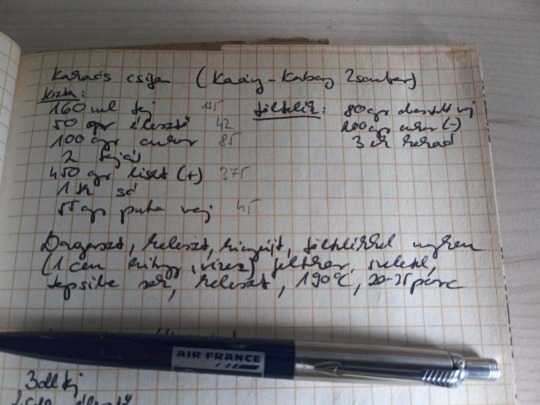 Kakaós csiga (Kádár-Kabay Zsombor)
Kézta:
160 ml tej 115 töltelék: 80 gr olvasztott vaj
50 gr élesztő 42 200 gr cukor (-)
100 gr cukor 85 3 ek kakaó
2 tojás
450 gr liszt (+) 375
1 tk só
55 gr puha vaj 45
Dagaszt, keleszt, kinyújt, töltelékkel megken
(1 cm, vizez) felteker, szeletel,
tepsibe rak, keleszt, 190°C, 20-25 perc
AIR FRANCE
3 dl tej